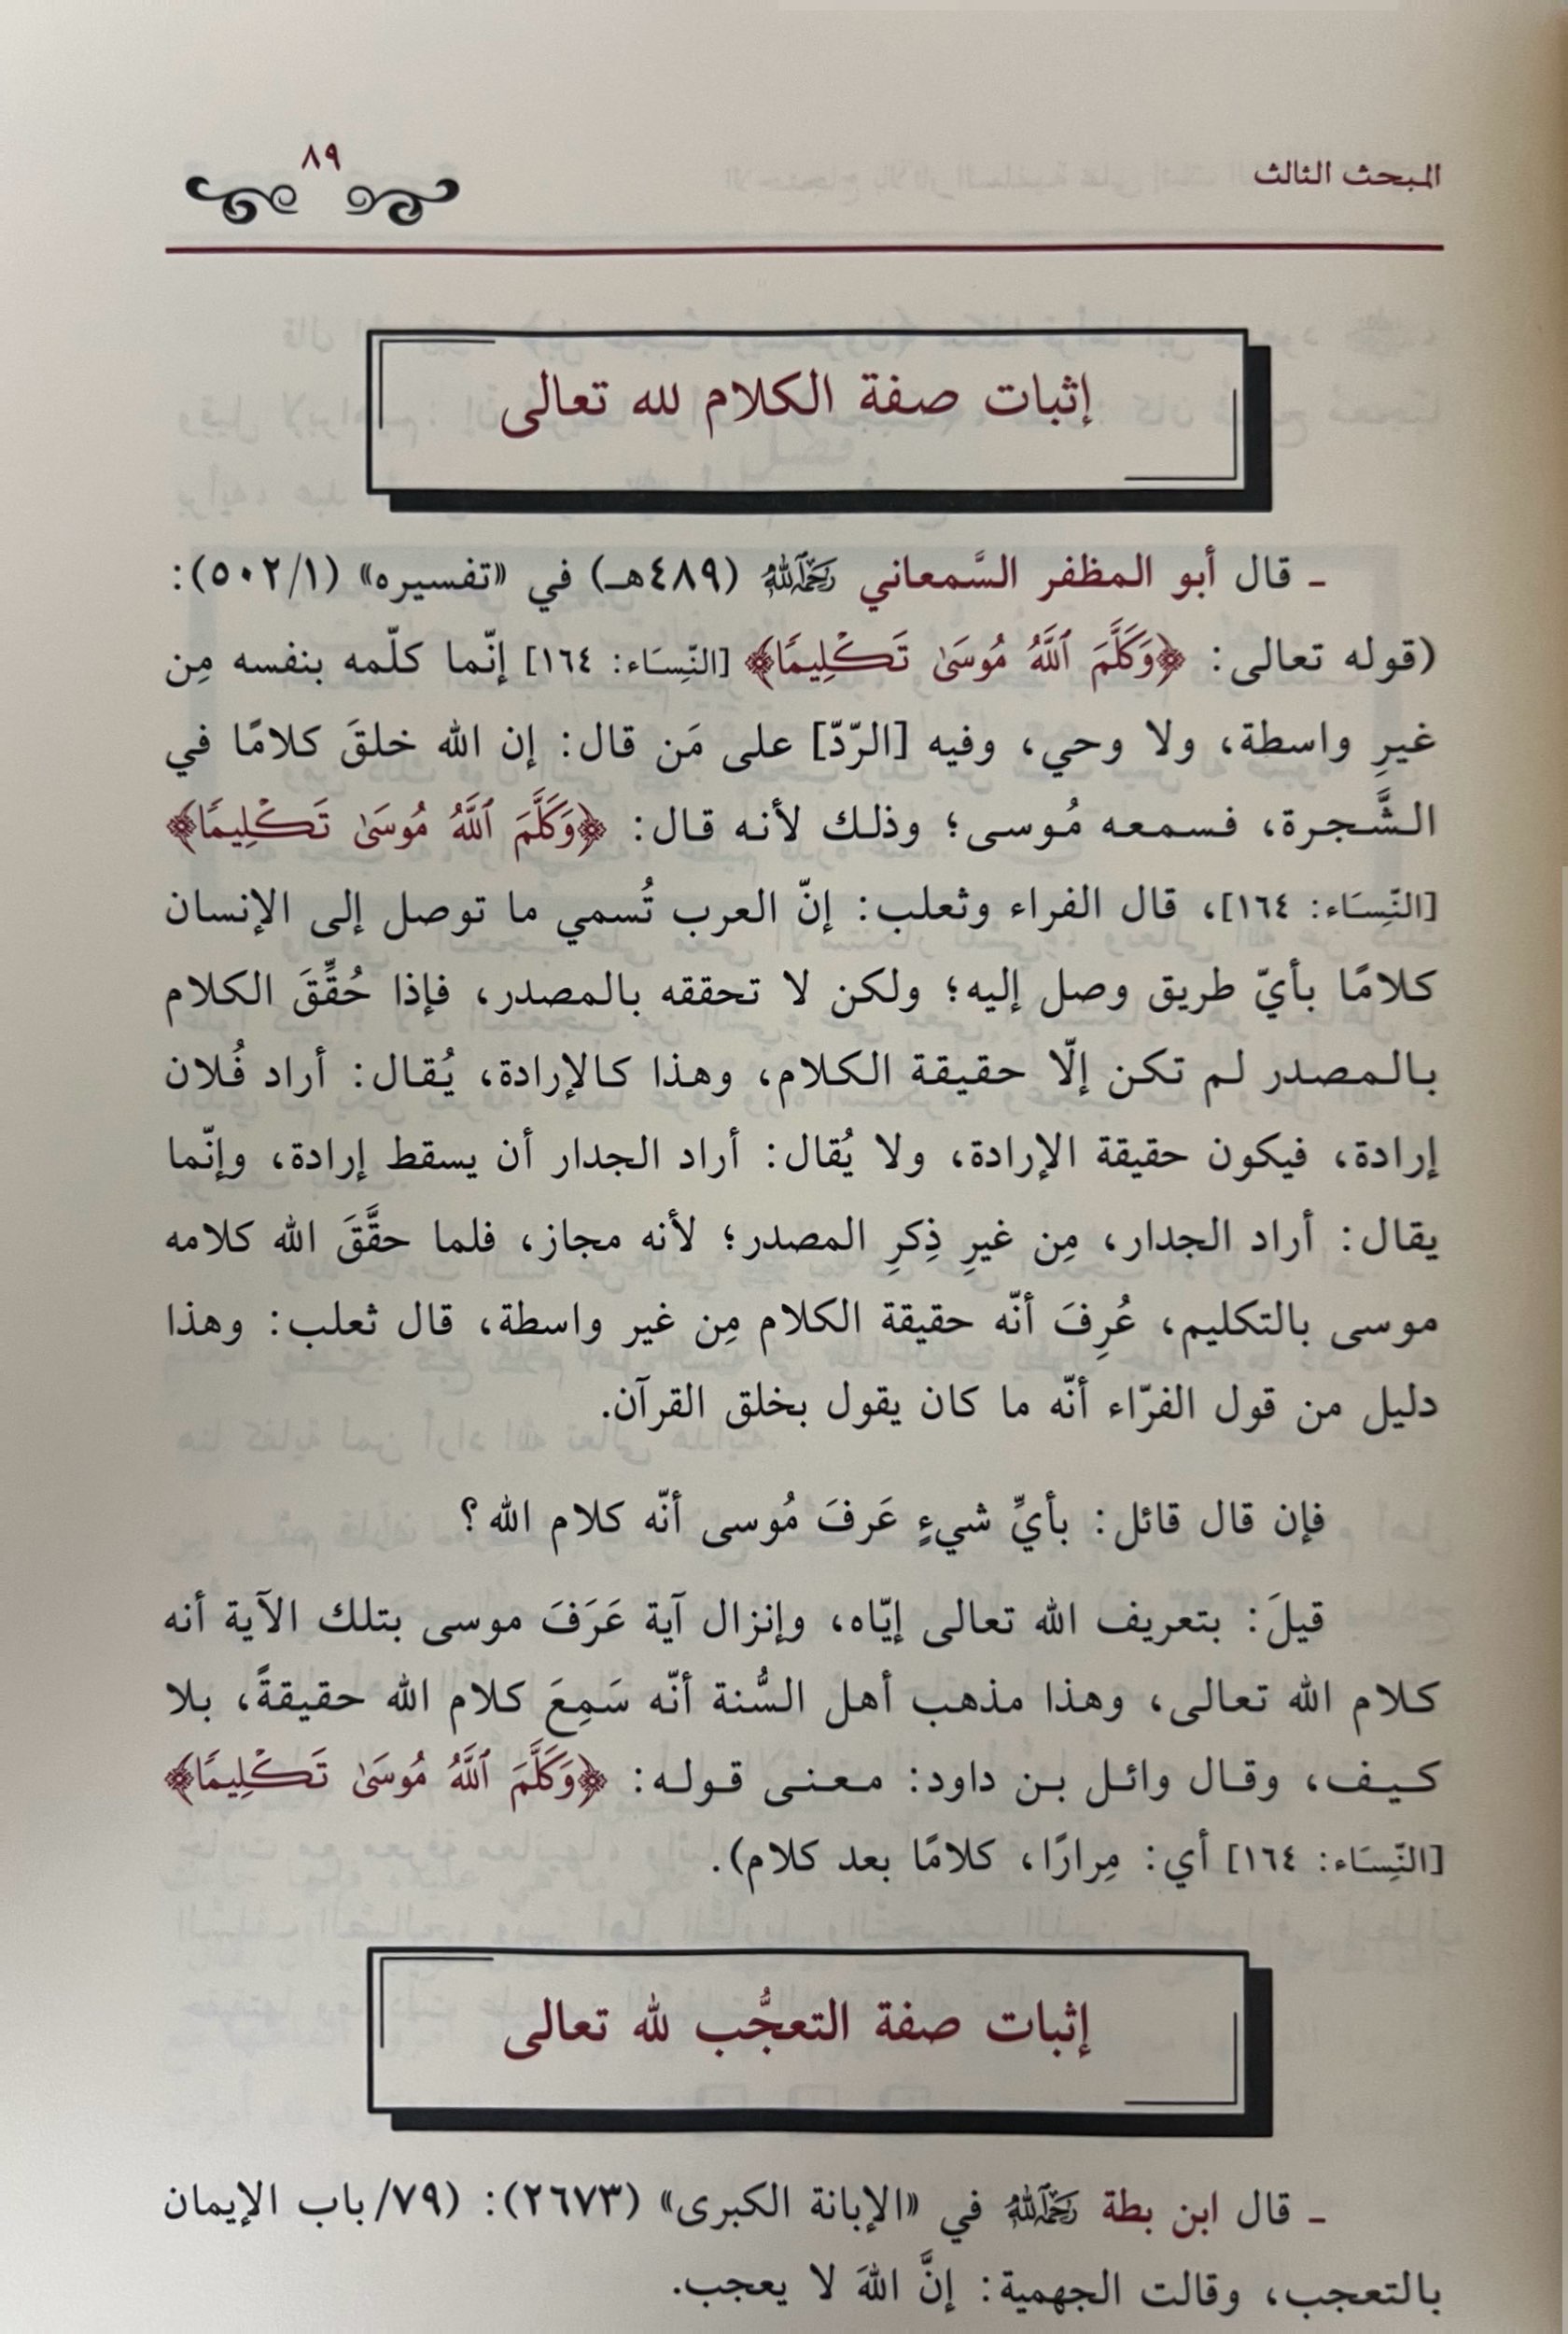 المبحث الثالث
٨٩
إثبات صفة الكلام لله تعالى
ـ قال أبو المظفر السَّمعاني رَحِمَهُ اللَّهُ (٤٨٩هـ) في «تفسيره» (٥٠٢/١):
(قوله تعالى: ﴿وَكَلَّمَ ٱللَّهُ مُوسَىٰ تَكْلِيمًا﴾ [النِّسَاء: ١٦٤] إنّما كلّمه بنفسه مِن
غيرِ واسطة، ولا وحي، وفيه [الرّدّ] على مَن قال: إن الله خلقَ كلامًا في
الشَّجرة، فسمعه مُوسى؛ وذلك لأنه قال: ﴿وَكَلَّمَ ٱللَّهُ مُوسَىٰ تَكْلِيمًا﴾
[النِّسَاء: ١٦٤]، قال الفراء وثعلب: إنّ العرب تُسمي ما توصل إلى الإنسان
كلامًا بأيّ طريق وصل إليه؛ ولكن لا تحققه بالمصدر، فإذا حُقِّقَ الكلام
بالمصدر لم تكن إلّا حقيقة الكلام، وهذا كالإرادة، يُقال: أراد فُلان
إرادة، فيكون حقيقة الإرادة، ولا يُقال: أراد الجدار أن يسقط إرادة، وإنّما
يقال: أراد الجدار، مِن غيرِ ذِكرِ المصدر؛ لأنه مجاز، فلما حقَّقَ الله كلامه
موسى بالتكليم، عُرِفَ أنّه حقيقة الكلام مِن غير واسطة، قال ثعلب: وهذا
دليل من قول الفرّاء أنّه ما كان يقول بخلق القرآن.
فإن قال قائل: بأيِّ شيءٍ عَرفَ مُوسى أنّه كلام الله؟
قيلَ: بتعريف الله تعالى إيّاه، وإنزال آية عَرَفَ موسى بتلك الآية أنه
كلام الله تعالى، وهذا مذهب أهل السُّنة أنّه سَمِعَ كلام الله حقيقةً، بلا
كيف، وقال وائل بن داود: معنى قوله: ﴿وَكَلَّمَ ٱللَّهُ مُوسَىٰ تَكْلِيمًا﴾
[النِّسَاء: ١٦٤] أي: مِرارًا، كلامًا بعد كلام).
إثبات صفة التعجُّب لله تعالى
ـ قال ابن بطة رَحِمَهُ اللَّهُ في «الإبانة الكبرى» (٢٦٧٣): (٧٩/باب الإيمان
بالتعجب، وقالت الجهمية: إنَّ اللهَ لا يعجب.